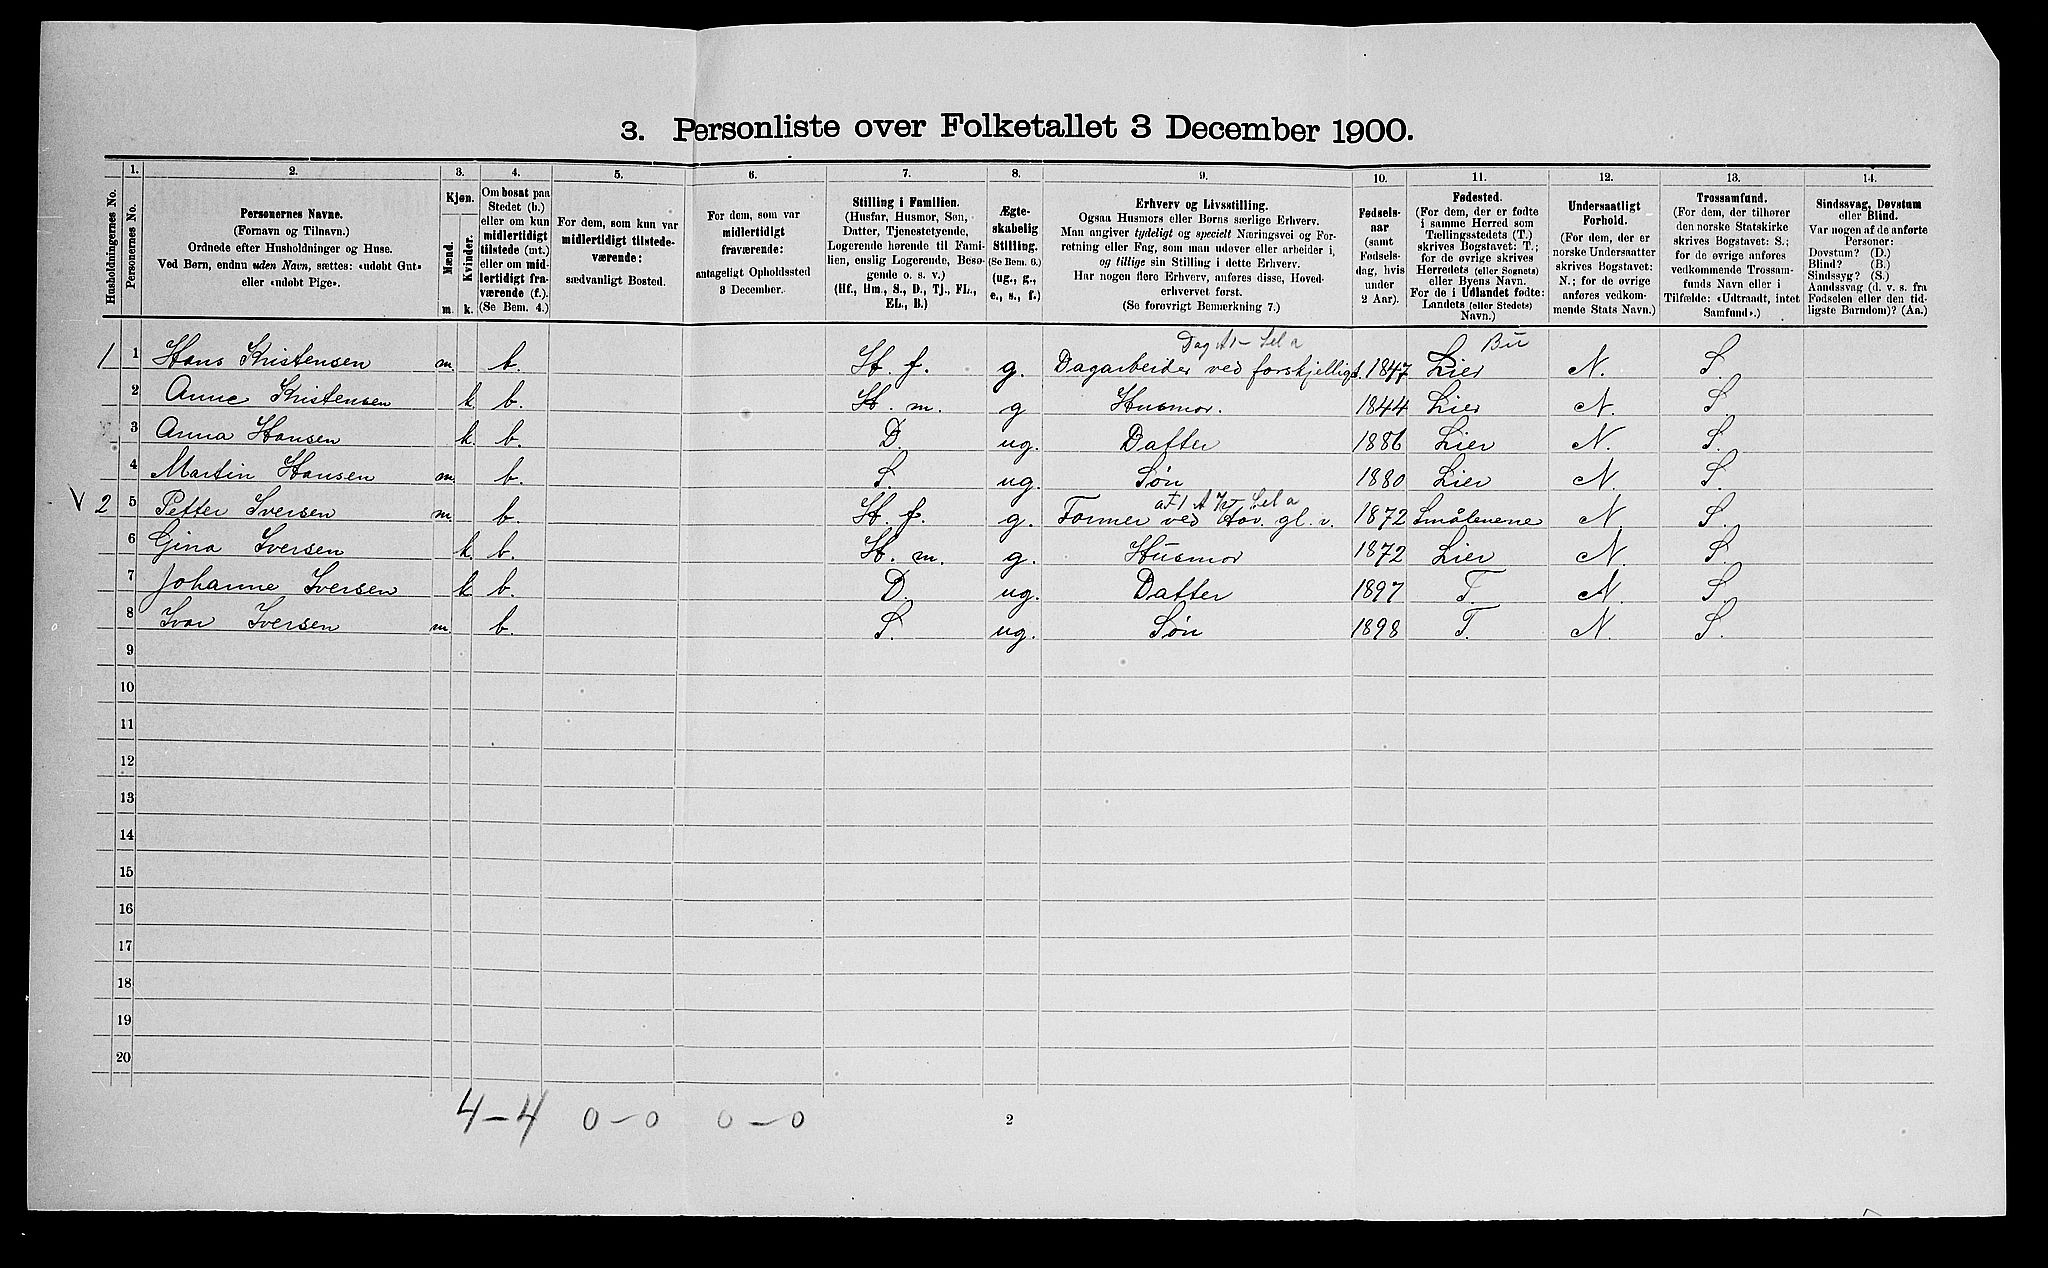 3. Personliste over Folketallet 3 December 1900.
Husholdningernes No.
1. Personernes No.
2. Personernes Navne.
(Fornavn og Tilnavn.)
Ordnede efter Husholdninger og Huse.
Ved Børn, endnu uden Navn, sættes: «udøbt Gut»
eller «udøbt Pige».
3. Kjøn.
Mænd. Kvinder.
m. k.
4. Om bosat paa
Stedet (b.)
eller om kun
midlertidigt
tilstede (mt.)
eller om mid-
lertidigt fra-
værende (f.)
(Se Bem. 4.)
5. For dem, som kun var
midlertidigt tilstede-
værende:
sædvanligt Bosted.
6. For dem, som var
midlertidigt
fraværende:
antageligt Opholdssted
3 December.
7. Stilling i Familien.
(Husfar, Husmor, Søn,
Datter, Tjenestetyende,
Logerende hørende til Fami-
lien, enslig Logerende, Besø-
gende o. s. v.)
(Hf., Hm., S., D., Tj., FL.,
EL., B.)
8. Ægte-
skabelig
Stilling.
(Se Bem. 6.)
(ug., g.,
e., s., f.)
9. Erhverv og Livsstilling.
Ogsaa Husmors eller Børns særlige Erhverv.
Man angiver tydeligt og specielt Næringsvei og For-
retning eller Fag, som man udøver eller arbeider i,
og tillige sin Stilling i dette Erhverv.
Har nogen flere Erhverv, anføres disse, Hoved-
erhvervet først.
(Se forøvrigt Bemærkning 7.)
10. Fødsels-
aar
(samt
Fødsels-
dag, hvis
under
2 Aar).
11. Fødested.
(For dem, der er fødte
i samme Herred som
Tællingsstedets (T.)
skrives Bogstavet: T.;
for de øvrige skrives
Herredets (eller Sognets)
eller Byens Navn.
For de i Udlandet fødte:
Landets (eller Stedets)
Navn.)
12. Undersaatligt
Forhold.
(For dem, der er
norske Undersaatter
skrives Bogstavet:
N.; for de øvrige
anføres vedkom-
mende Stats Navn.)
13. Trossamfund.
(For dem, der tilhører
den norske Statskirke
skrives Bogstavet: S.;
for de øvrige anføres
vedkommende Trossam-
funds Navn eller i
Tilfælde: «Udtraadt, intet
Samfund».)
14. Sindssvag, Døvstum
eller Blind.
Var nogen af de anførte
Personer:
Døvstum? (D.)
Blind? (B.)
Sindssyg? (S.)
Aandssvag (d. v. s. fra
Fødselen eller den tid-
ligste Barndom)? (Aa.)
Bu
1 1 Hans Kristensen m. b. H. f. g. Dagarbeider ved forskjelligt. 1847 Lier N. S.
2 Anne Kristensen k b. H. m. g Husmor. 1844 Lier N. S.
3 Anna Hansen k. b. D. ug. Datter 1886 Lier N. S.
4 Martin Hansen m. b. S. ug. Søn 1880 Lier N. S.
V 2 5 Petter Iversen m. b. H. f. g. Former ved Hov. gl. v. 1872 Smålenene N. S.
6 Gina Iversen k. b. H. m. g. Husmor 1872 Lier N. S.
7 Johanne Iversen k b. D. ug. Datter 1897 T. N. S.
8 Ivar Iversen m. b. S. ug. Søn 1898 T. N. S.
9
10
11
12
13
14
15
16
17
18
19
20
4-4 0-0 0-0
2